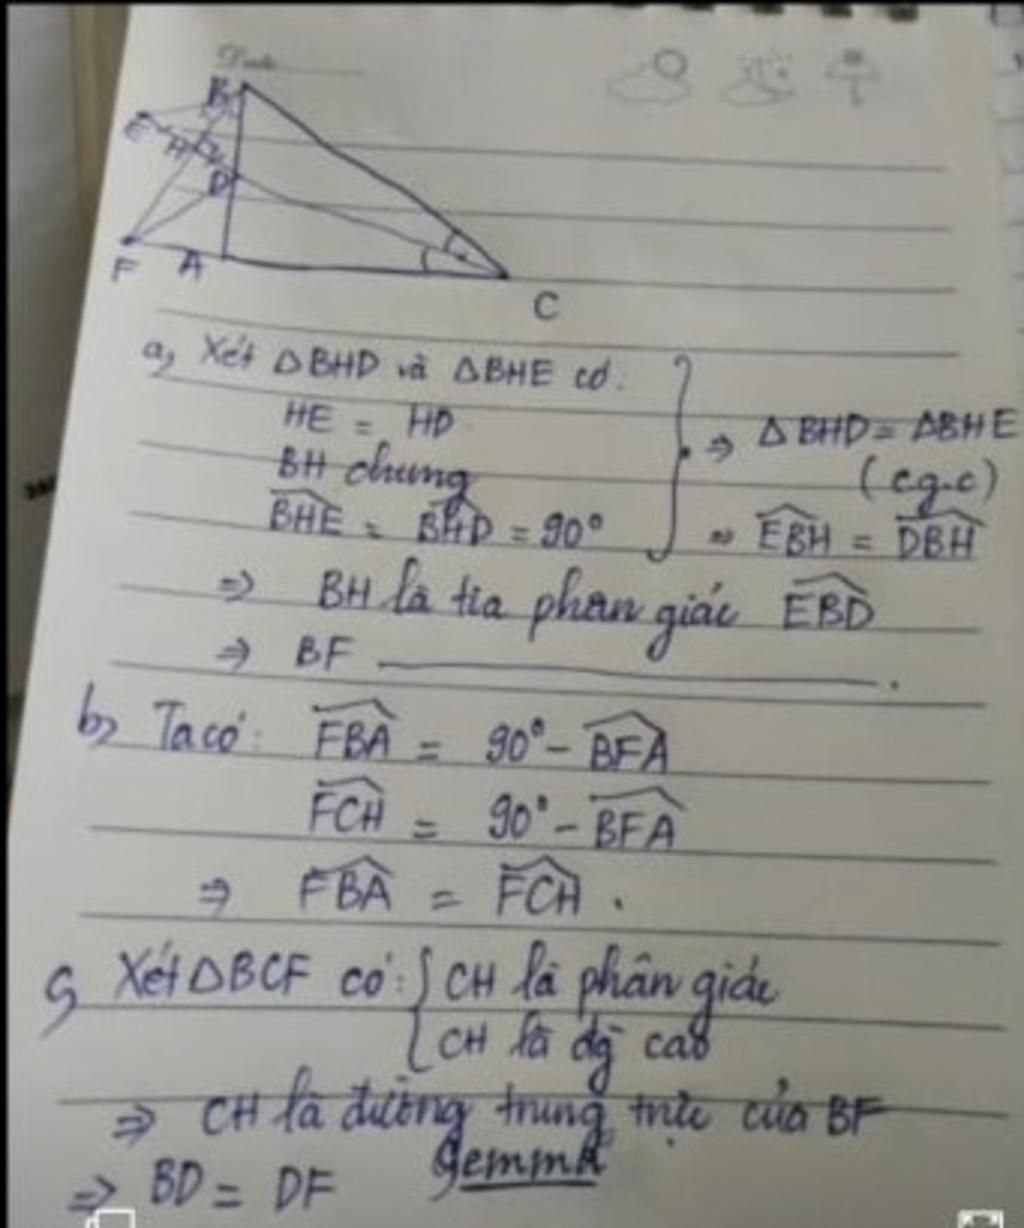 Date
B
E H
D
F A
C
a, Xét ΔBHD và ΔBHE có:
HE = HD
BH chung
BHE = BHD = 90°
⇒ ΔBHD = ΔBHE
(c.g.c)
⇒ EBH = DBH
⇒ BH là tia phân giác EBD
⇒ BF ———.
b, Ta có: FBA = 90° - BFA
FCH = 90° - BFA
⇒ FBA = FCH.
c, Xét ΔBCF có: { CH là phân giác
CH là đg cao
⇒ CH là đường trung trực của BF
⇒ BD = DF
Gemma